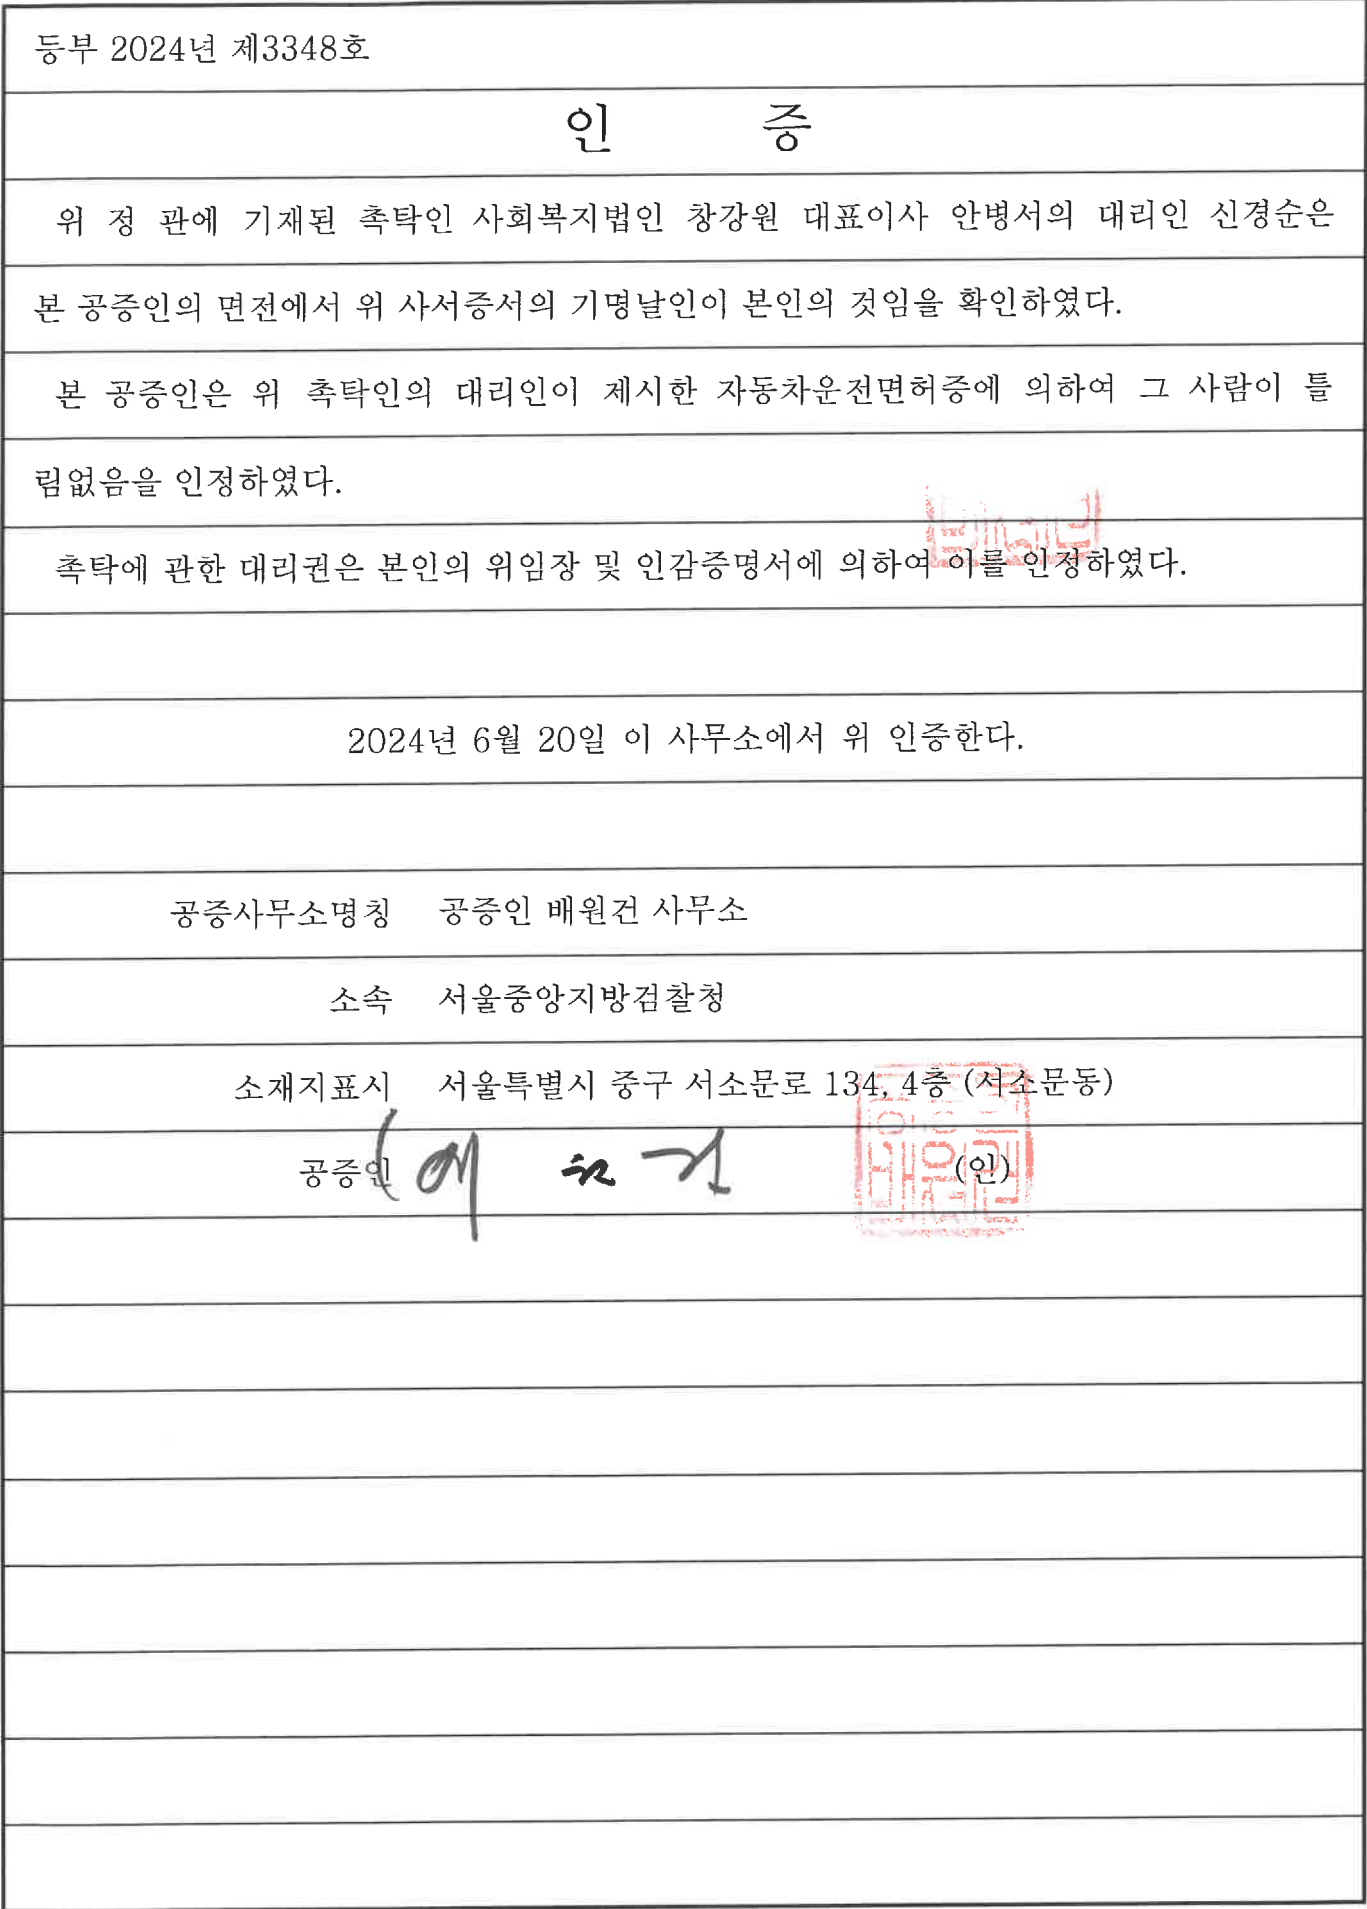 등부 2024년 제3348호
인 증
위 정 관에 기재된 촉탁인 사회복지법인 창강원 대표이사 안병서의 대리인 신경순은
본 공증인의 면전에서 위 사서증서의 기명날인이 본인의 것임을 확인하였다.
본 공증인은 위 촉탁인의 대리인이 제시한 자동차운전면허증에 의하여 그 사람이 틀
림없음을 인정하였다.
촉탁에 관한 대리권은 본인의 위임장 및 인감증명서에 의하여 이를 인정하였다.
2024년 6월 20일 이 사무소에서 위 인증한다.
공증사무소명칭 공증인 배원건 사무소
소속 서울중앙지방검찰청
소재지표시 서울특별시 중구 서소문로 134, 4층 (서소문동)
공증인 (인)